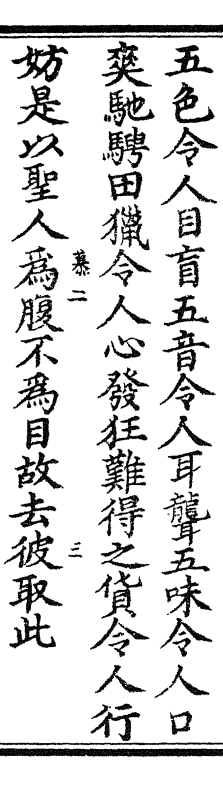 五色令人目盲五音令人耳聾五味令人口
爽馳騁田獵令人心發狂難得之貨令人行
妨是以聖人爲腹不爲目故去彼取此
慕二
三